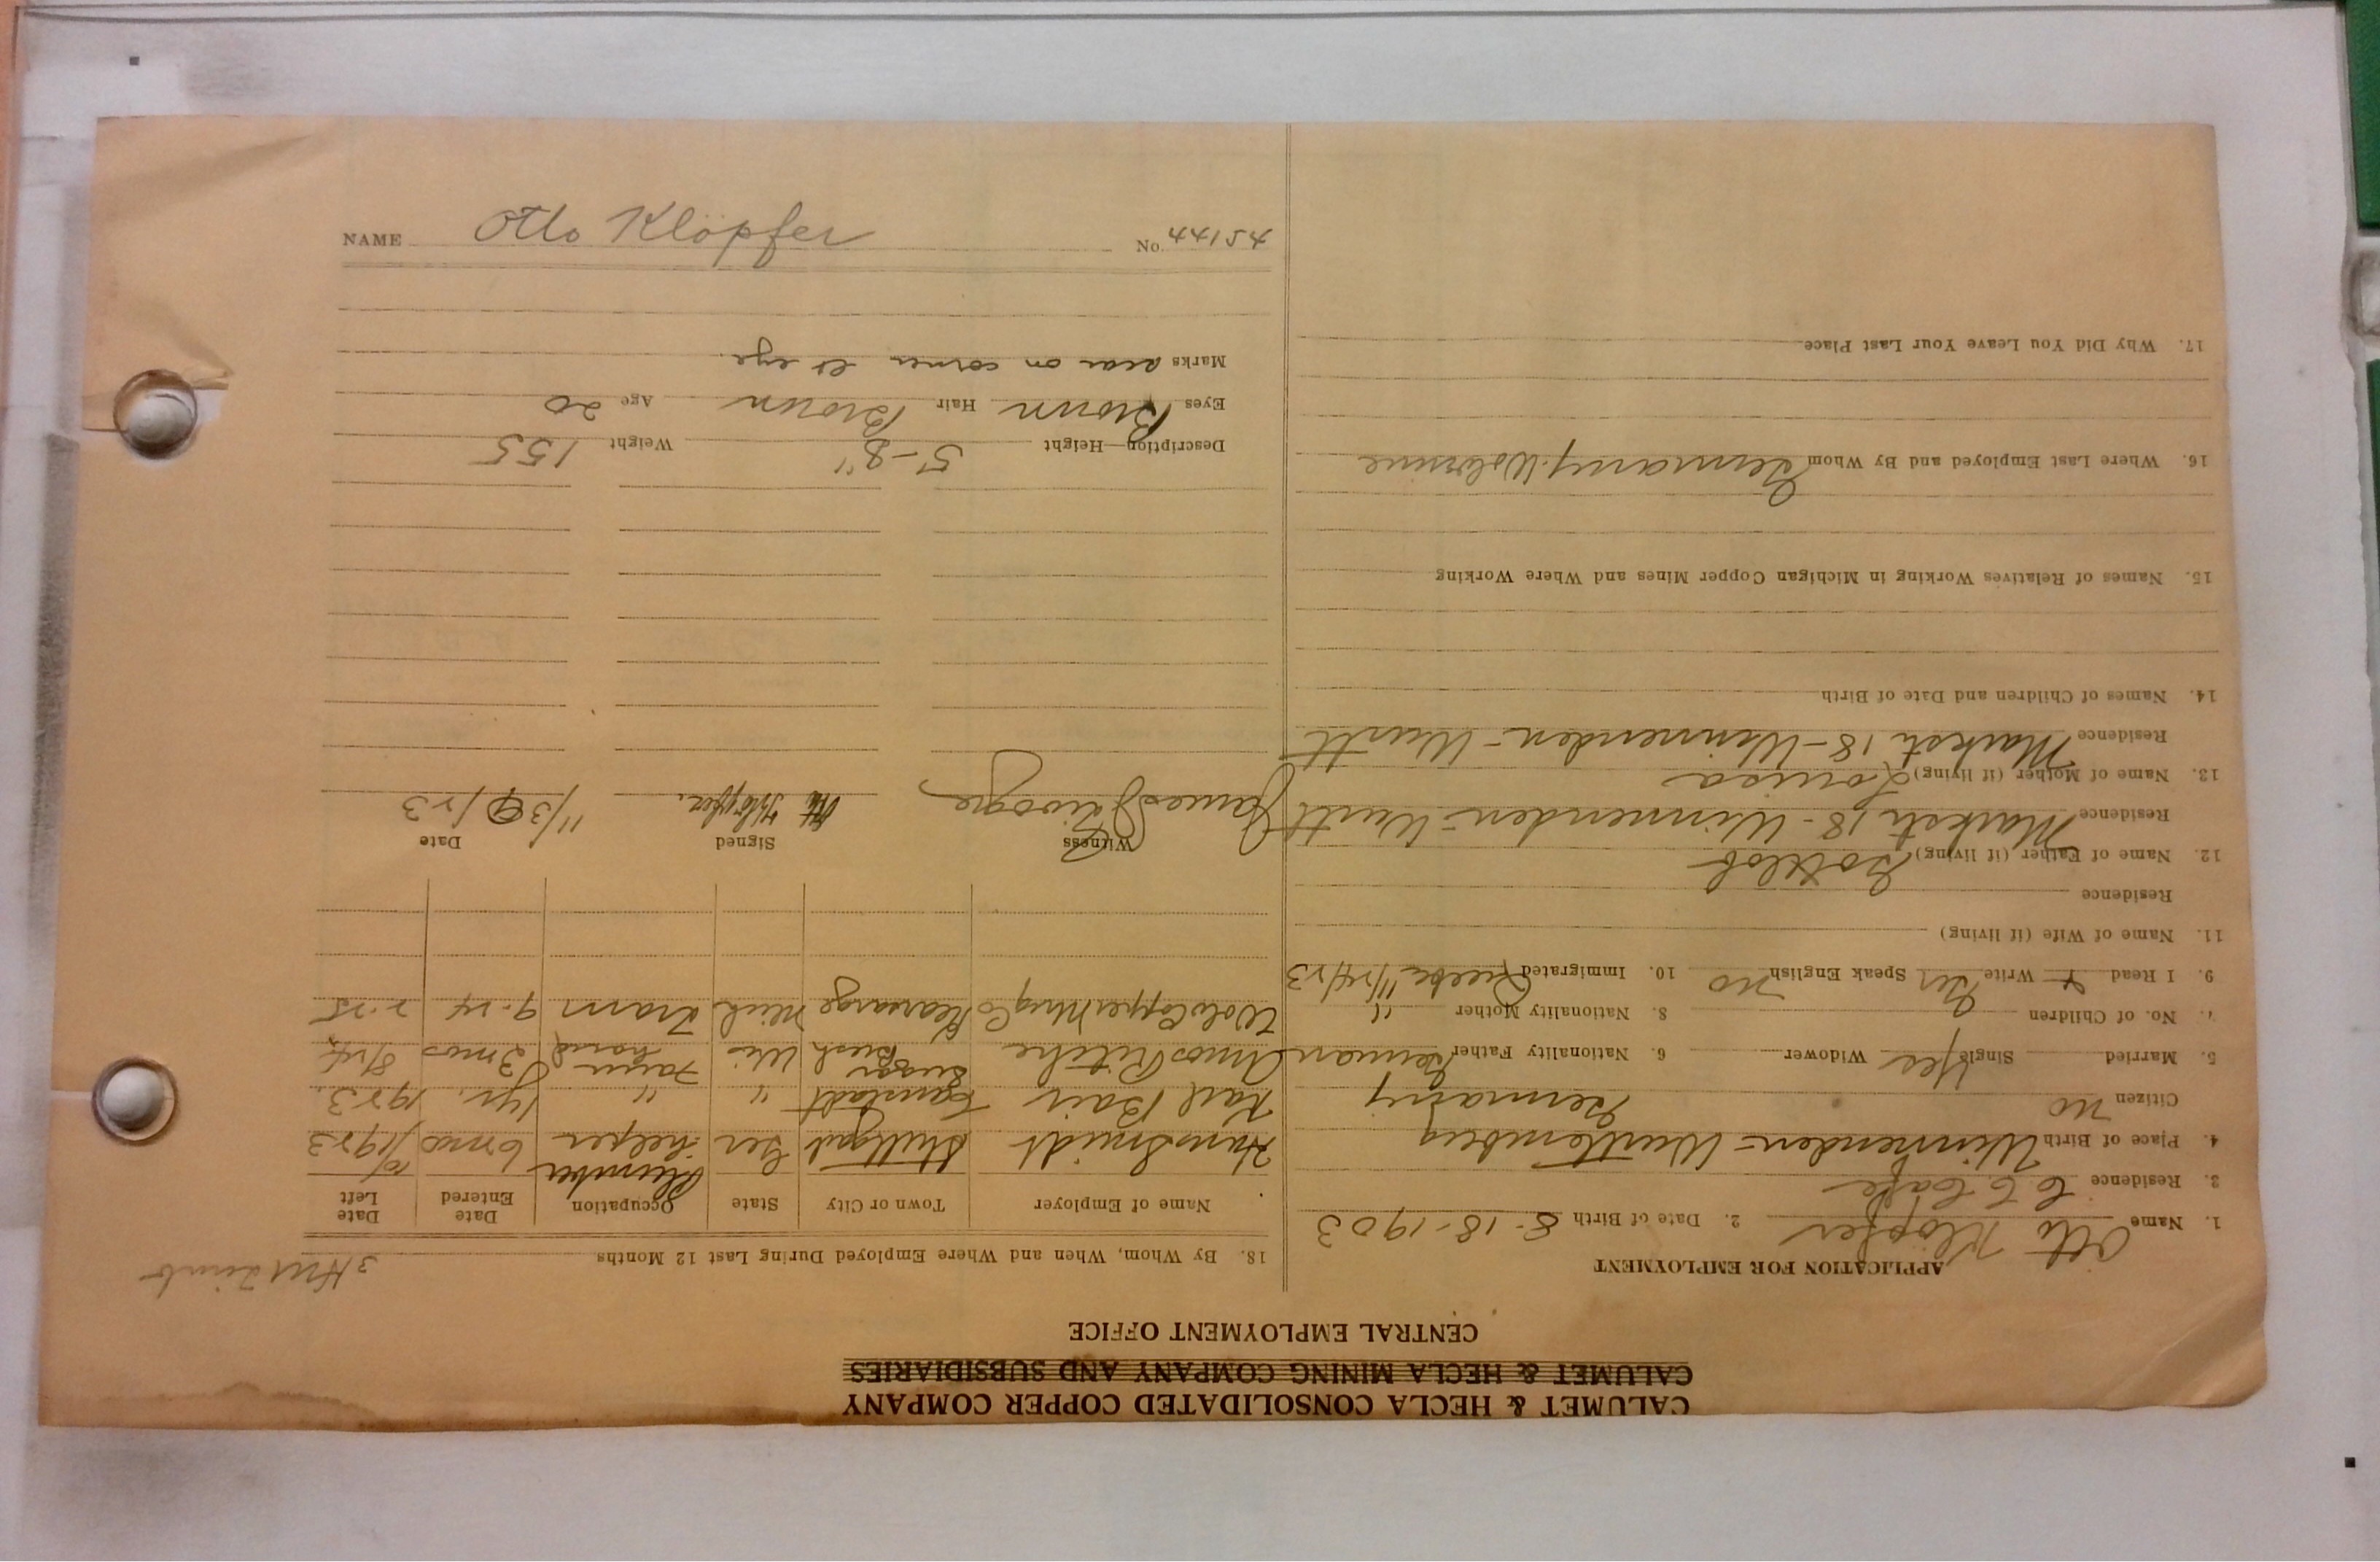 CALUMET & HECLA CONSOLIDATED COPPER COMPANY
CALUMET & HECLA MINING COMPANY AND SUBSIDIARIES
CENTRAL EMPLOYMENT OFFICE
APPLICATION FOR EMPLOYMENT
1. Name Otto Klöpfer 2. Date of Birth 8-18-1903
3. Residence Cafe
4. Place of Birth Winnenden - Württemberg
Citizen no Germany
5. Married Single Yes Widower 6. Nationality Father German
7. No. of Children 8. Nationality Mother "
9. I Read Write Ger Speak English No 10. Immigrated Quebec 11/24/23
11. Name of Wife (if living)
Residence
12. Name of Father (if living) Gottlob
Residence Marktstr 18 - Winnenden - Wurtt
13. Name of Mother (if living) Louisa
Residence Marktstr 18 - Winnenden - Wurtt
14. Names of Children and Date of Birth
15. Names of Relatives Working in Michigan Copper Mines and Where Working
16. Where Last Employed and By Whom Germany. Wolverine
17. Why Did You Leave Your Last Place
18. By Whom, When and Where Employed During Last 12 Months
Name of Employer Town or City State Occupation Date Entered Date Left
Hans Smidt Stuttgart Ger Plumber helper 6 mos 10/1923
Karl Bair Cannstadt " " 1 yr. 1923.
Amos Ritchie Sugar Bush Wis Farm hand 3 mos 8/24
Wolv Copper Mng Co Kearsarge Mich Tram 9-24 2-25
Witness Signed Date
James Otto Klöpfer. 11/30/23
Description—Height 5-8" Weight 155
Eyes Brown Hair Brown Age 20
Marks scar on corner lt eye.
NAME Otto Klöpfer No. 44154